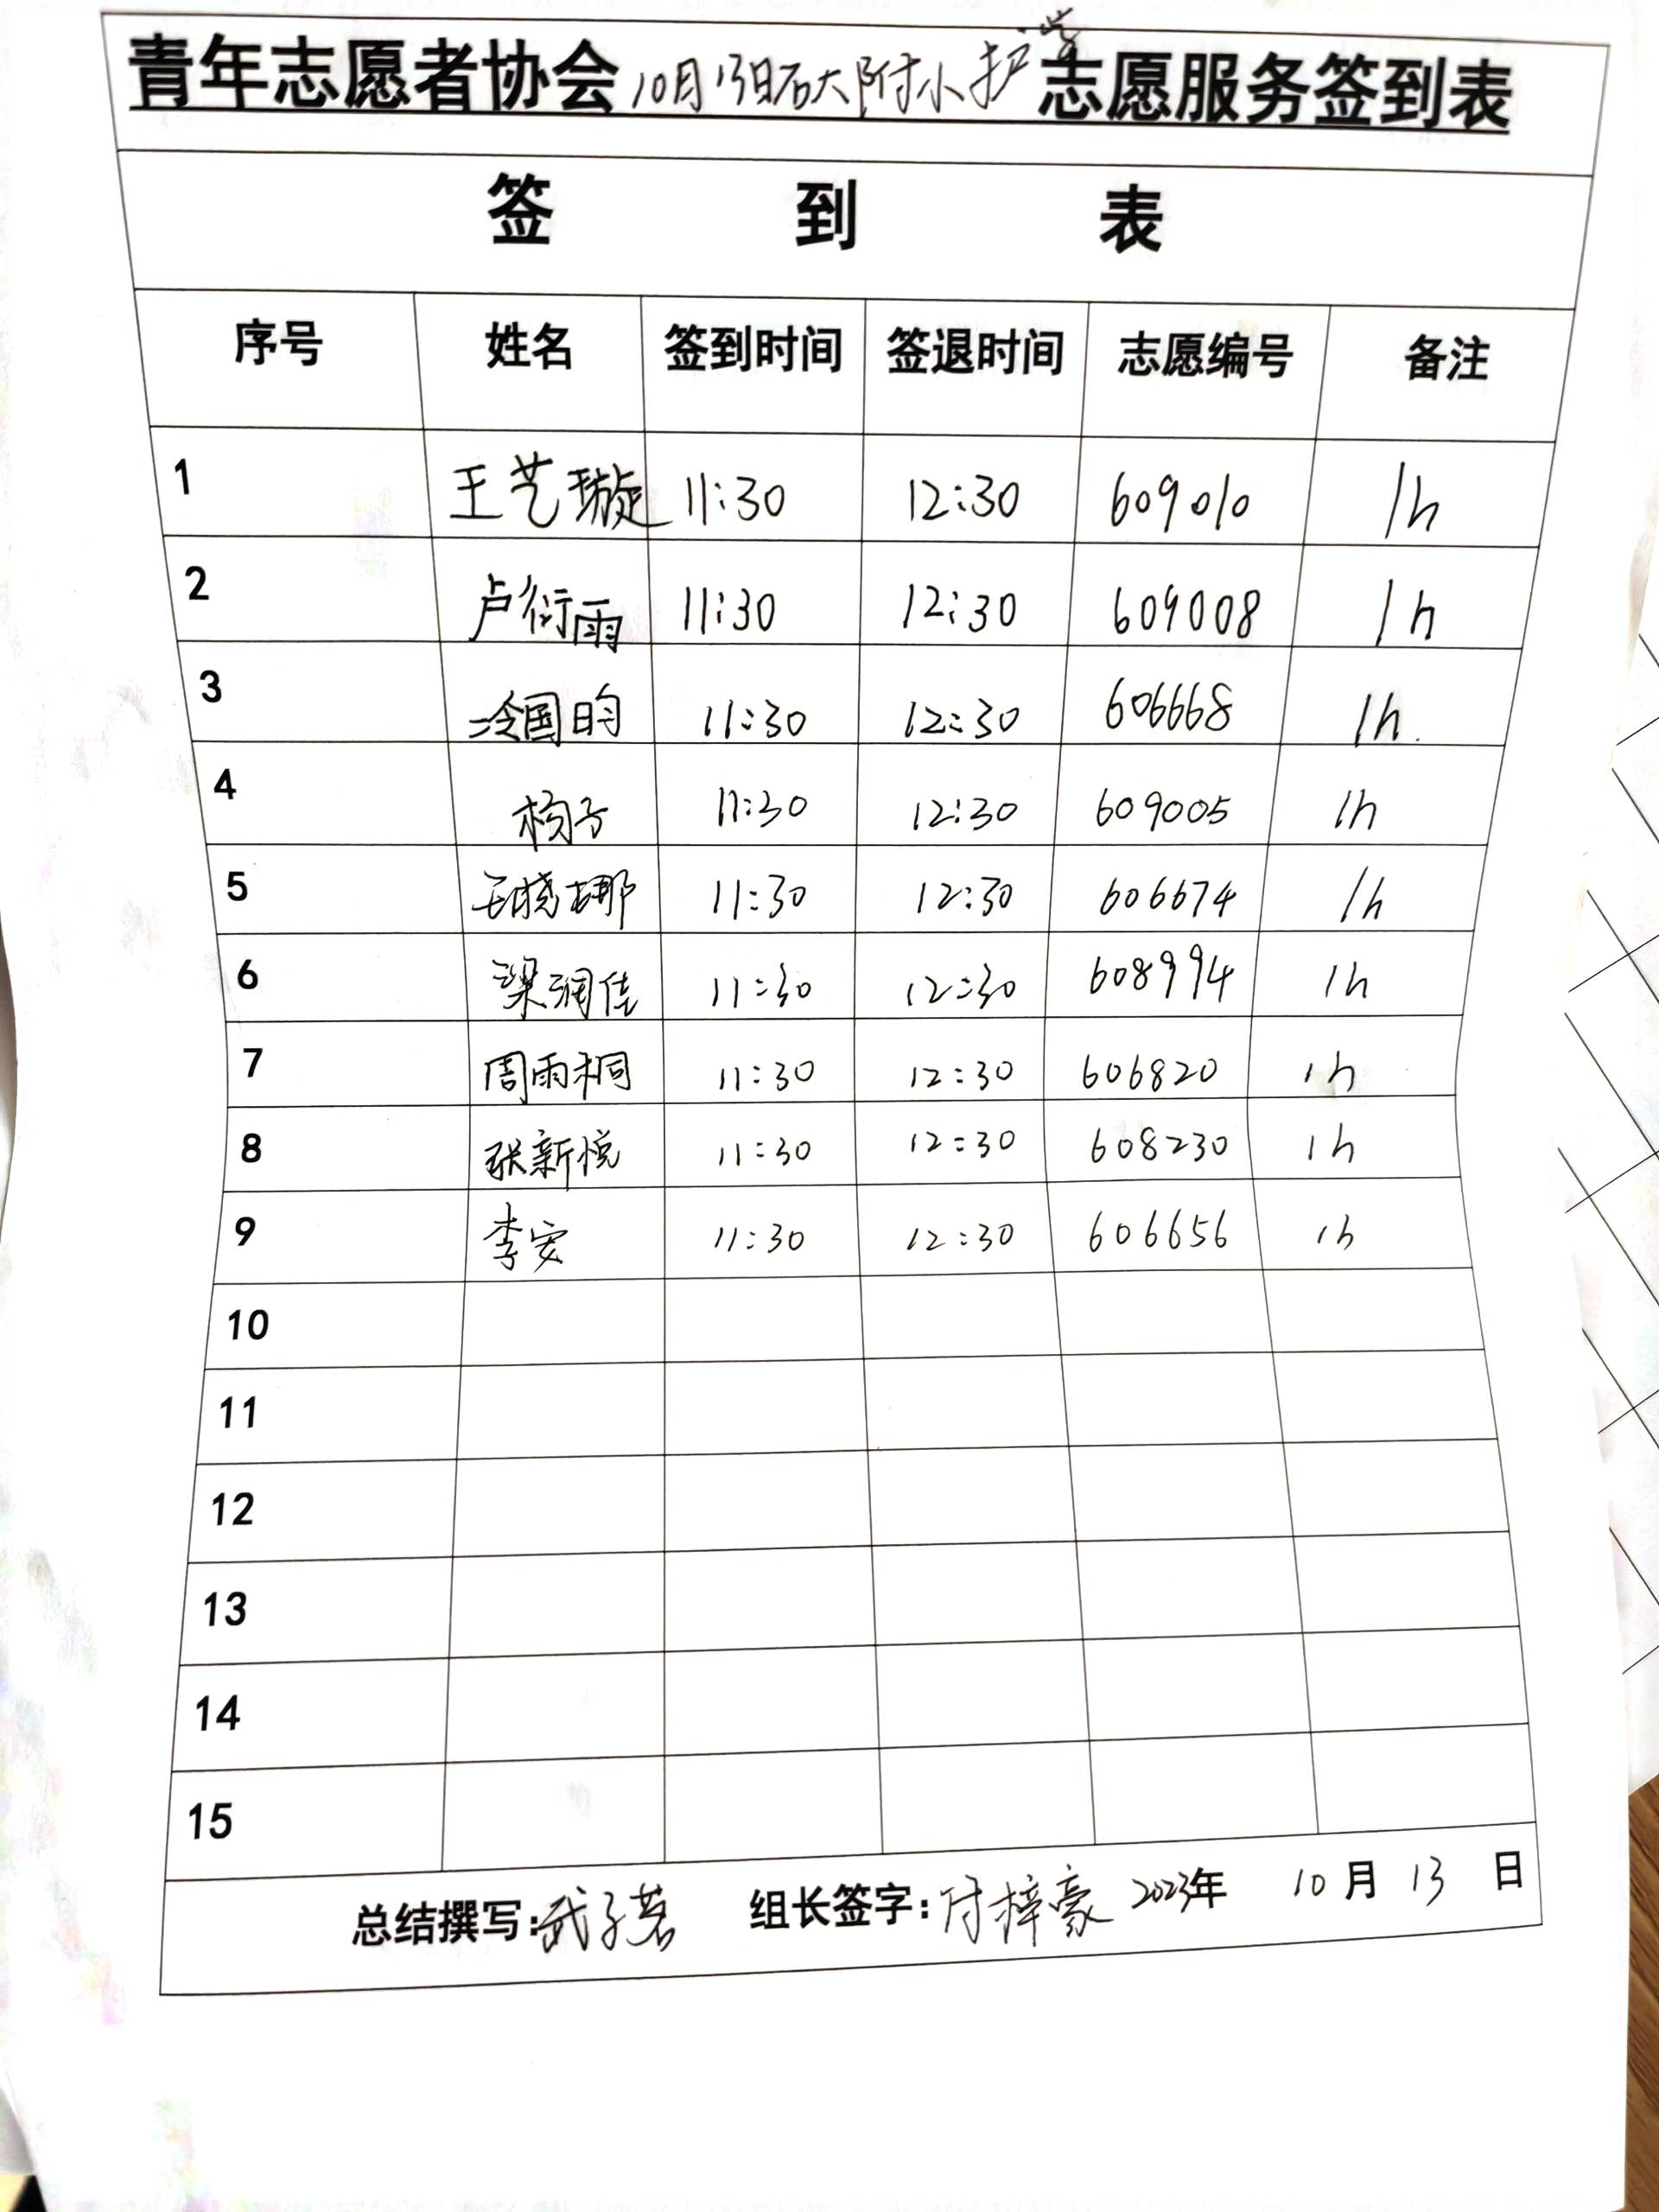 青年志愿者协会10月13日石大附小护学志愿服务签到表
签 到 表
序号 姓名 签到时间 签退时间 志愿编号 备注
1 王艺璇 11:30 12:30 609010 1h
2 卢衍雨 11:30 12:30 609008 1h
3 冷国昀 11:30 12:30 606668 1h.
4 杨子 11:30 12:30 609005 1h
5 王晓娜 11:30 12:30 606674 1h
6 梁润佳 11:30 12:30 608994 1h
7 周雨桐 11:30 12:30 606820 1h
8 张新悦 11:30 12:30 608230 1h
9 李安 11:30 12:30 606656 1h
10
11
12
13
14
15
总结撰写:武子茗 组长签字:付梓豪 2023年 10月 13 日